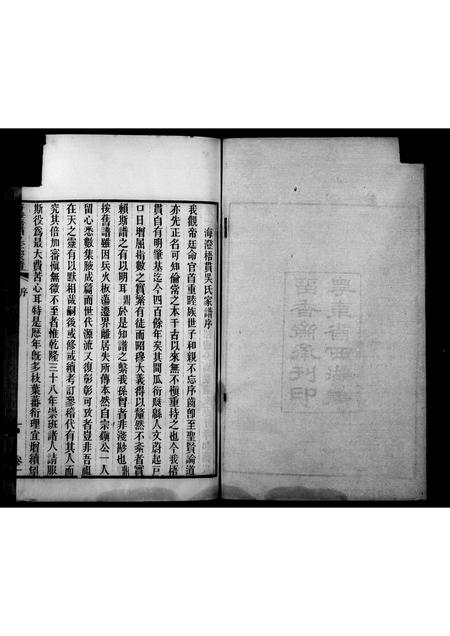 海澄梧貫吳氏家譜序
我觀帝廷命官首重睦族世子和親不忘序齒卽至聖賢論道
亦先正名可知倫常之本千古以來無不愼重持之也今我梧
貫自有明肇基迄今四百餘年矣其間瓜衍縣人文蔚起戸
口日增屈指數之實繁有徒而昭穆大義得以釐然不紊者實
賴斯譜之有以明耳於是知譜之繫我孫曾者非淺尠也
按舊譜雖因兵火板蕩遷界離居失所傳本然自宗鎭公一人
留心悉數集腋成篇而世代源流又復彰彰可致者豈非吾祖
在天之靈有以默相哉嗣後或修或續考訂參稽代有其人而
究其倍加審愼無微不至者惟乾隆三十八年崇班諸人請服
斯役爲最大費苦心耳特是歷年旣多枝葉蕃衍理宜增續
序
廣東省西
留香齋承刊印